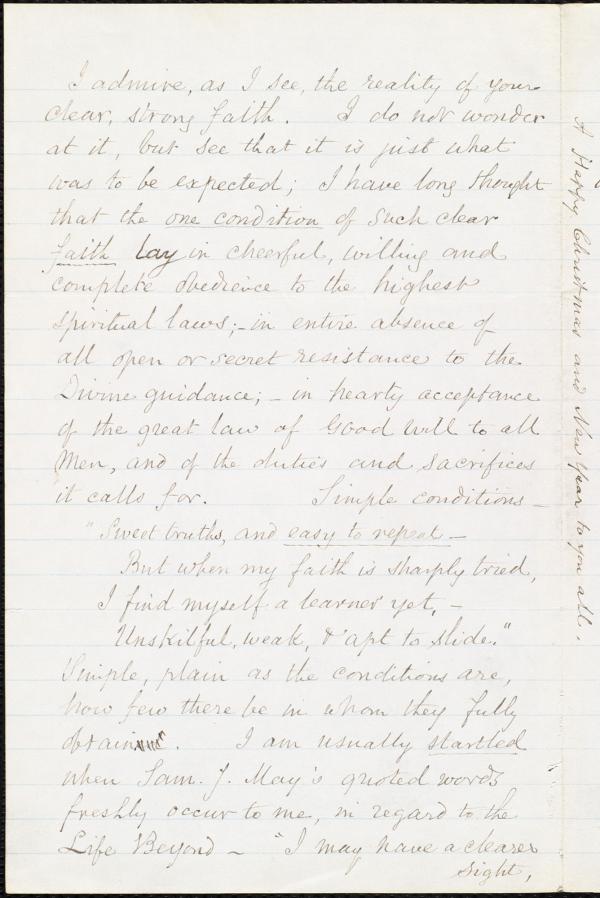 I admire, as I see, the reality of your
clear, strong faith. I do not wonder
at it, but see that it is just what
was to be expected; I have long thought
that the one condition of such clear
faith lay in cheerful, willing and
complete obedience to the highest
spiritual laws;- in entire absence of
all open or secret resistance to the
Divine guidance; - in hearty acceptance
of the great law of Good Will to all
Men, and of the duties and sacrifices
it calls for. Simple conditions -
"Sweet truths, and easy to repeat -
But when my faith is sharply tried,
I find myself a learner yet, -
Unskilful, weak, & apt to slide."
Simple, plain as the conditions are,
how few there be in whom they fully
obtain. I am usually startled
when Sam. J. May's quoted words
freshly occur to me, in regard to the
Life Beyond - "I may have a clearer
sight,
A Happy Christmas and New Year to you all.